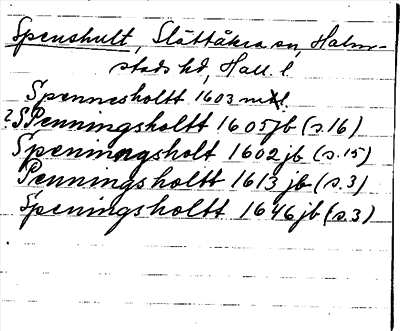 Spenshult, Slättåkra sn, Halm-
stads hd, Hall. l.
Spennesholtt 1603 mtl.
? SPenningsholtt 1605 jb (s. 16)
Speninngsholt 1602 jb (s. 15)
Penningsholtt 1613 jb (s. 3)
Speningsholtt 1646 jb (s. 3)